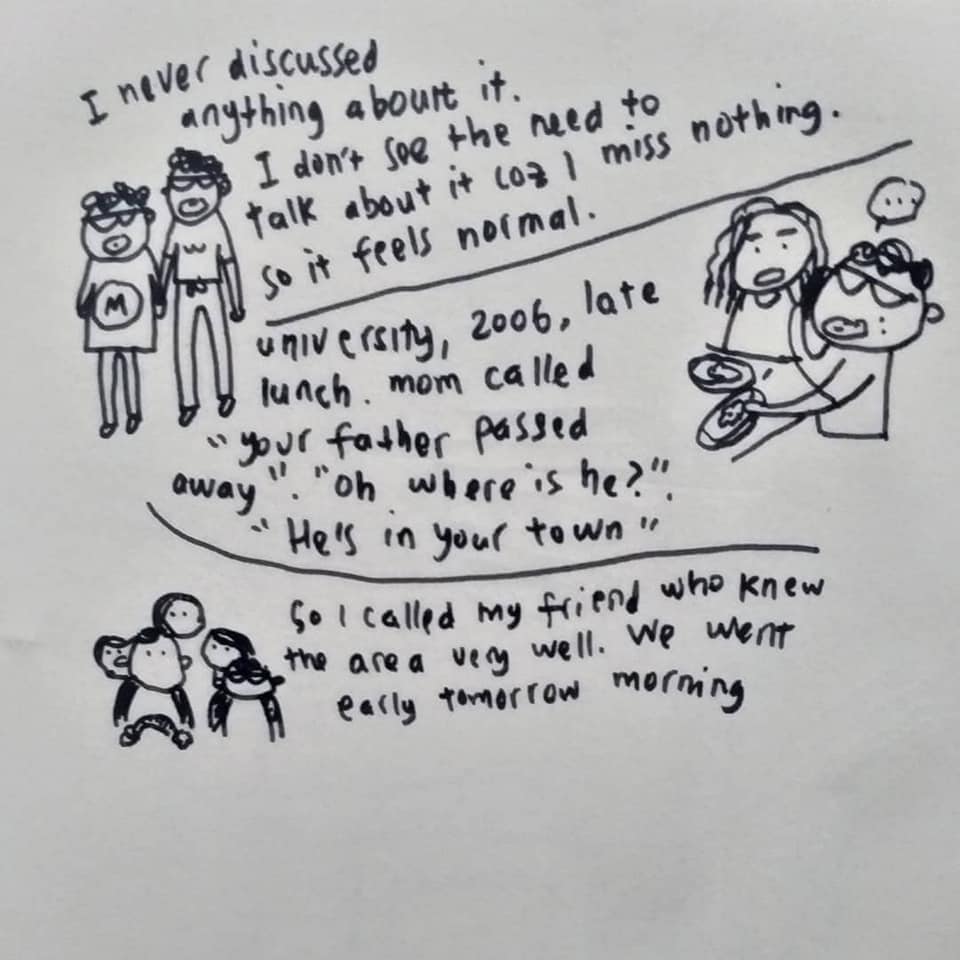 I never discussed
anything abourt it.
I don't see the need to
talk about it coz I miss nothing.
so it feels normal.
M
university, 2006, late
lunch. mom called
"your father passed
away". "Oh where is he?".
"He's in your town"
So I called my friend who knew
the area very well. We went
early tomorrow morning